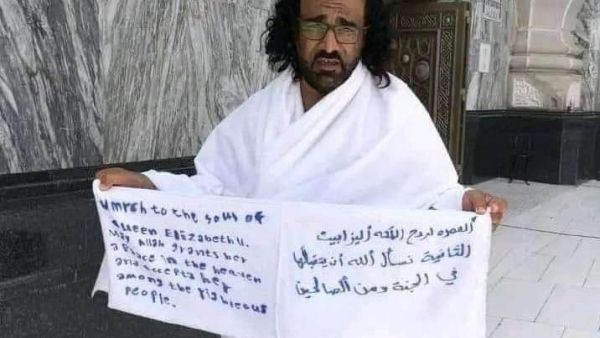 Umrah to the soul of
Queen Elizabeth II.
May Allah grants her
a place in the heaven
and accepts her
among the righteous
people.
العمره لروح الملكه أليزابيث
الثانية نسأل الله أن يتقبلها
في الجنة ومن الصالحين